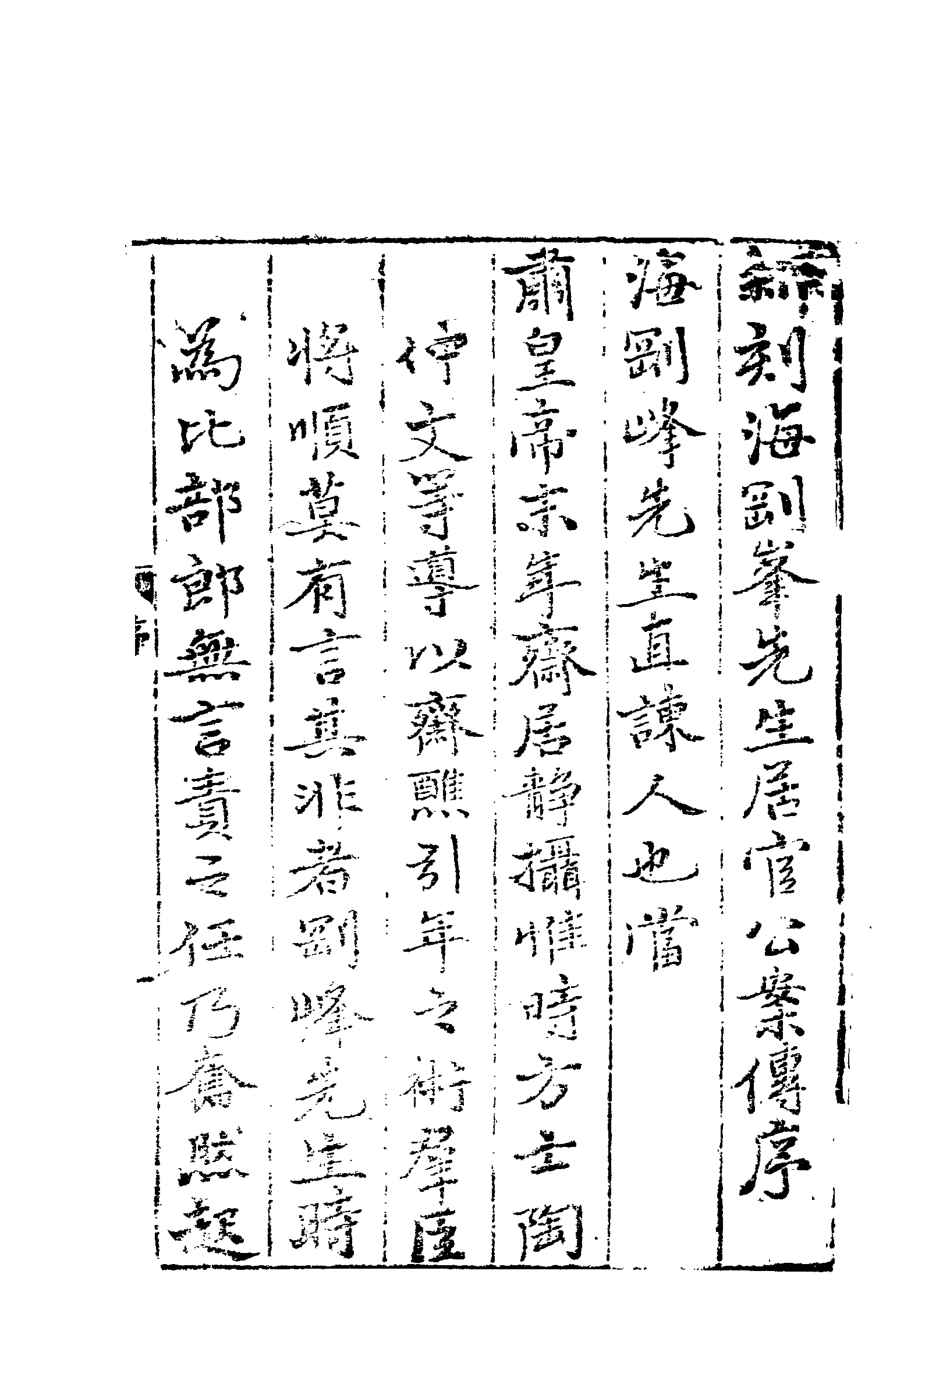 新刻海剛峯先生居官公案傳序
海剛峰先生直諫人也當
肅皇帝末年齋居静攝惟時方士陶
仲文等導以齋醮引年之術羣臣
將順莫有言其非者剛峰先生時
為比部郎無言責之任乃奮然起